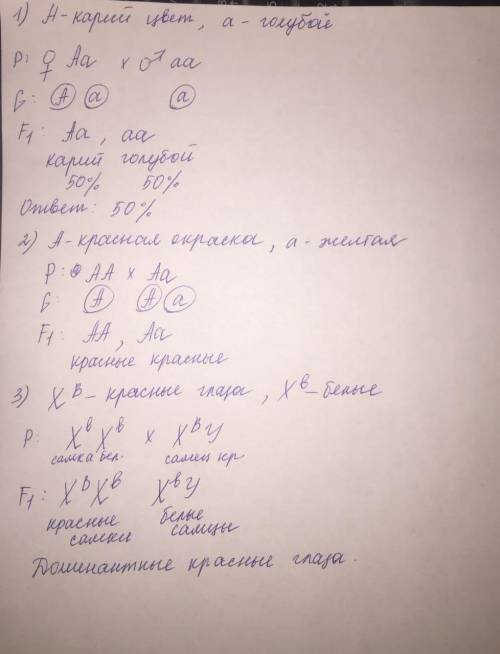 1) А-карий цвет, а - голубой
P: ♀ Aa x ♂ aa
G: A a a
F1: Aa, aa
карий голубой
50% 50%
Ответ: 50%
2) А-красная окраска, а - желтая
P: AA x Aa
G: A A a
F1: AA, Aa
красные красные
3) X^B - красные глаза, X^b - белые
P: X^b X^b x X^B У
самка бел. самец кр
F1: X^B X^b X^b У
красные белые
самки самцы
Доминантные красные глаза.